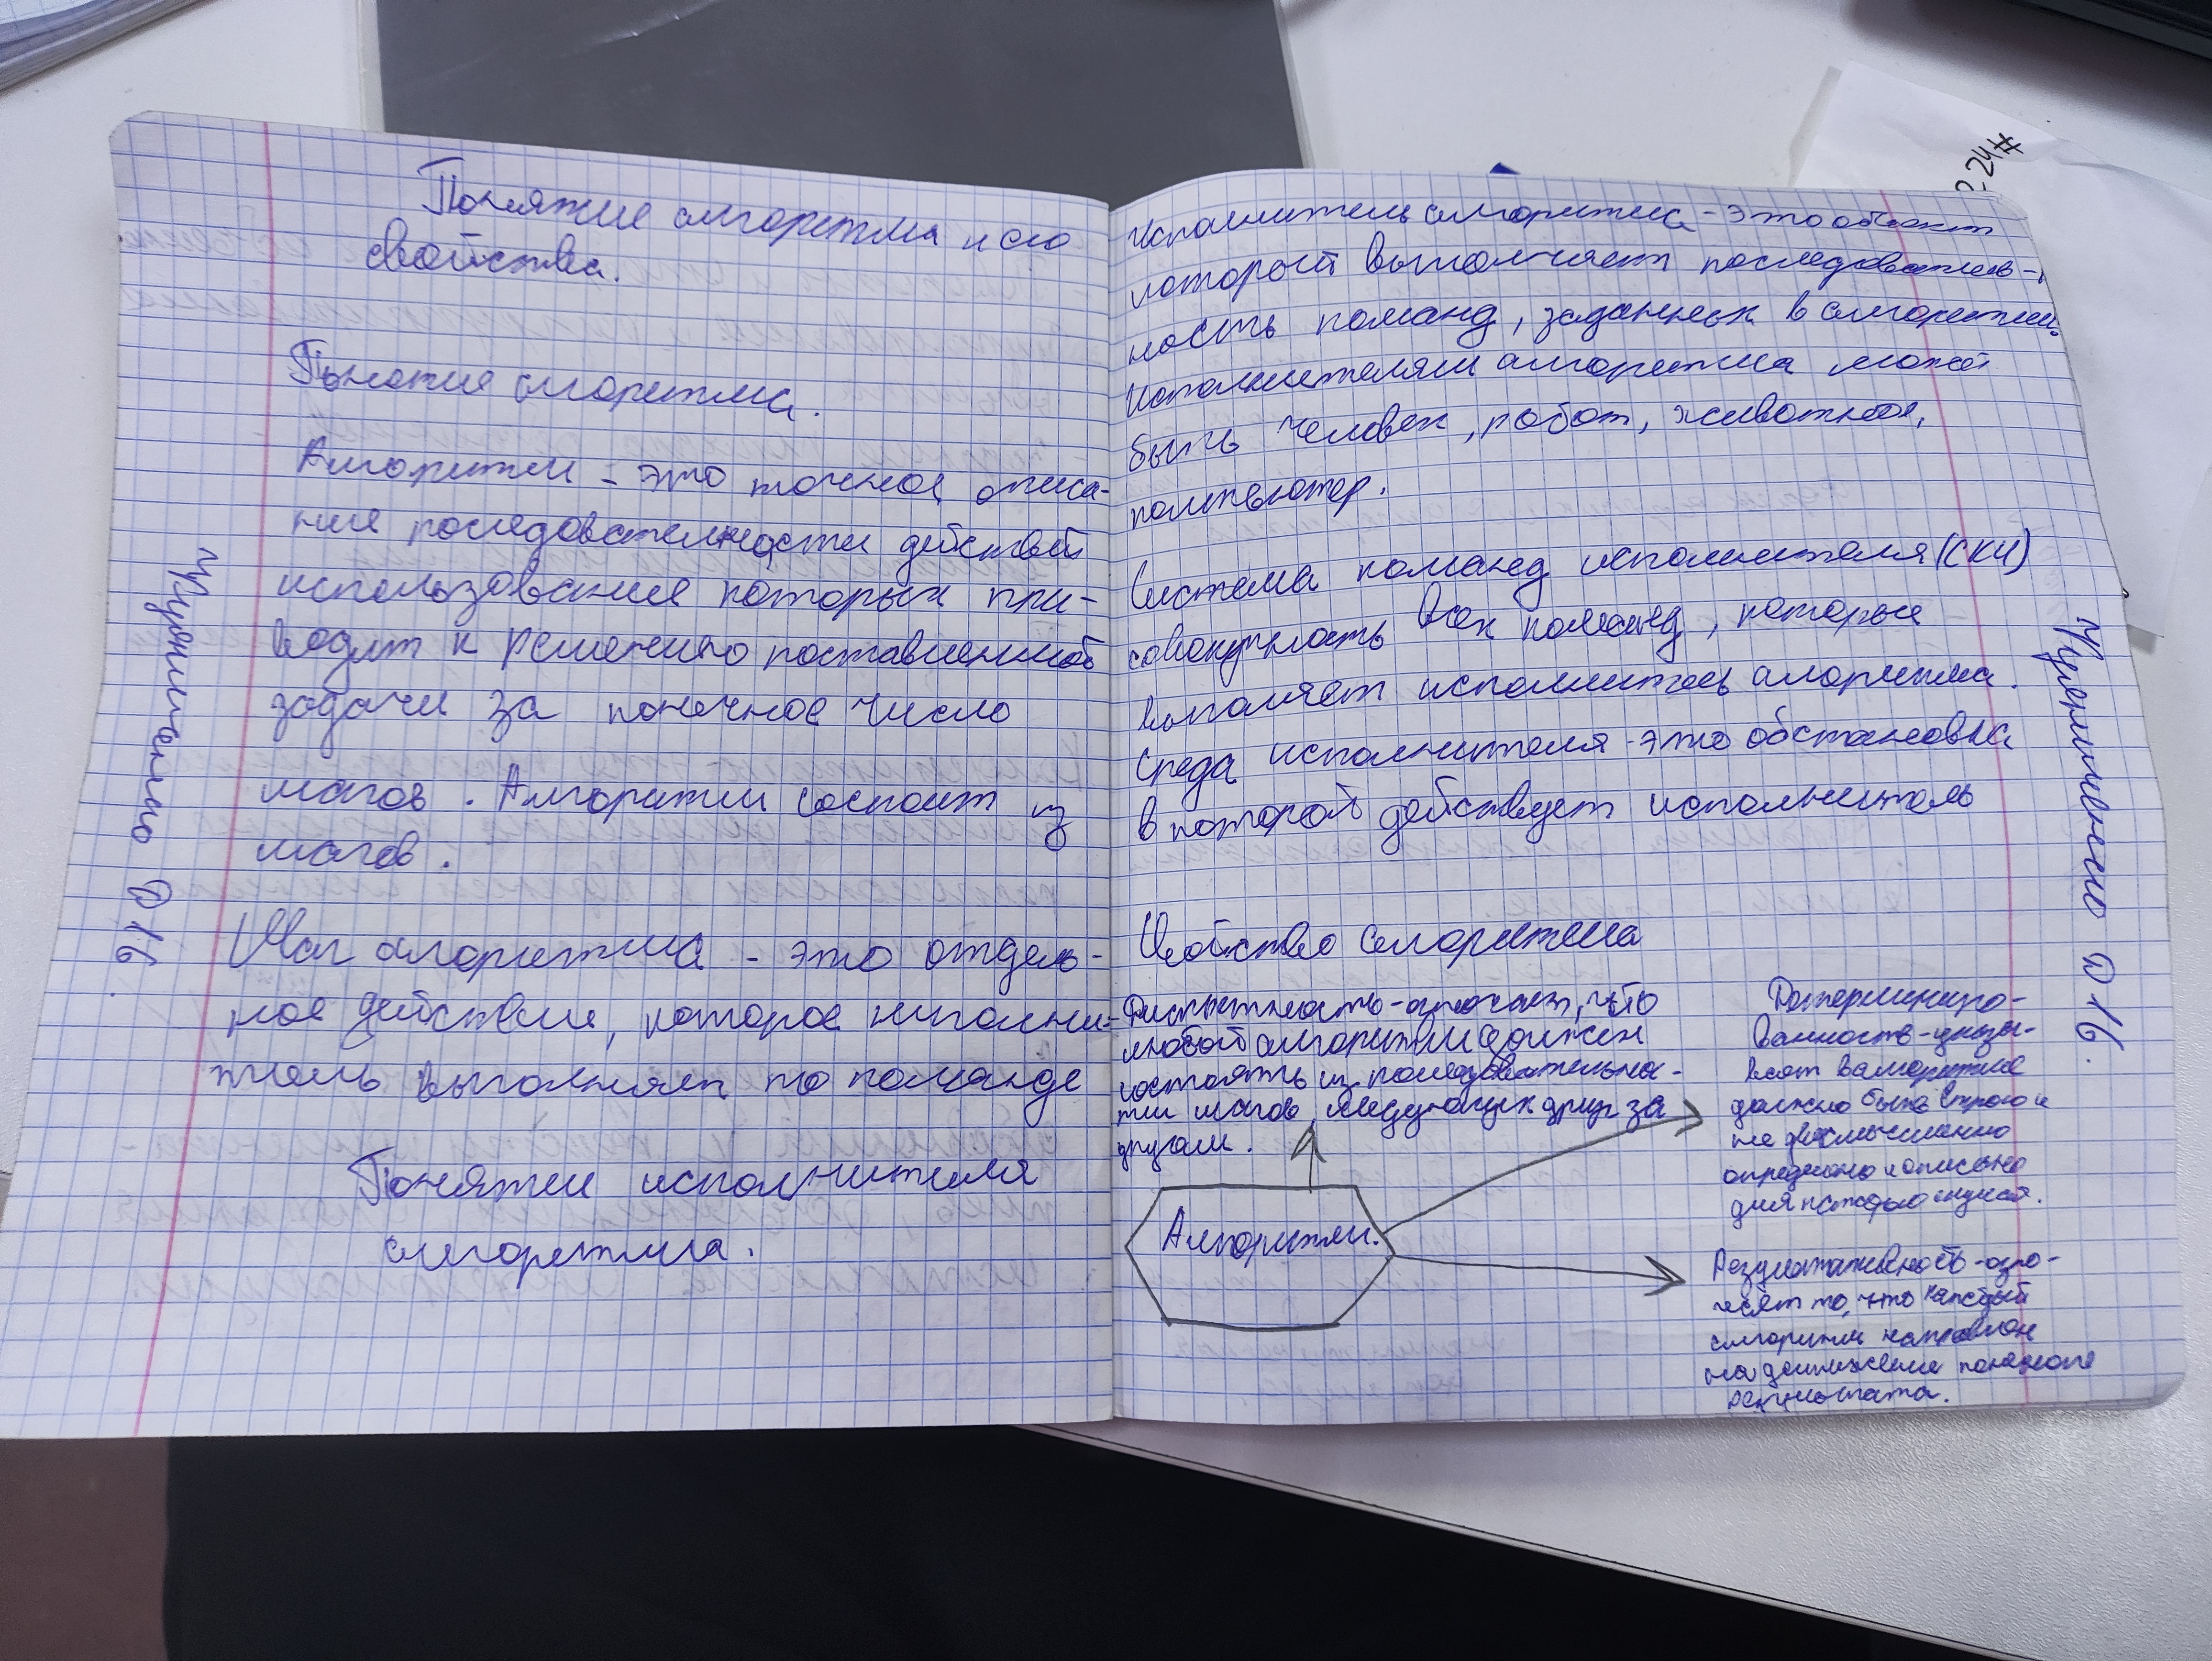 Понятие алгоритма и его
свойства.
Понятие алгоритма.
Алгоритм - это точное описа-
ние последовательности действий
использование которых при-
водит к решению поставленной
задачи за конечное число
шагов. Алгоритм состоит из
шагов.
Шаг алгоритма - это отдель-
ное действие, которое исполни-
тель выполняет по команде
Понятие исполнителя
алгоритма.
Исполнитель алгоритма - это объект
который выполняет последователь-
ность команд, заданных в алгоритме.
Исполнителем алгоритма может
быть человек, робот, животное,
компьютер.
Система команд исполнителя (СКИ)
совокупность всех команд, которые
выполняет исполнитель алгоритма.
Среда исполнителя - это обстановка
в которой действует исполнитель
Свойство алгоритма
Дискретность - означает, что
любой алгоритм должен
состоять из последовательнос-
ти шагов, следующих друг за
другом.
Детерминиро-
ванность - указы-
вает в алгоритме
должно быть строго и
не двусмысленно
определено и описано
для каждого шага.
Алгоритм.
Результативность - озна-
чает то, что каждый
алгоритм направлен
на достижение конечного
результата.
D 16.
D 16.
24#